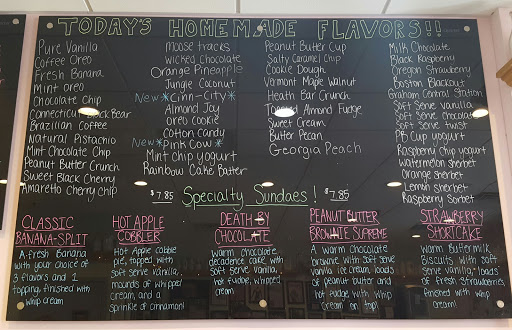 TODAY'S HOMEMADE FLAVORS!!
Pure Vanilla
Coffee Oreo
Fresh Banana
Mint oreo
Chocolate Chip
Connecticut Black Bear
Brazilian Coffee
Natural Pistachio
Mint Chocolate Chip
Peanut Butter Crunch
Sweet Black Cherry
Amaretto Cherry Chip
moose tracks
wicked chocolate
Orange Pineapple
Jungle Coconut
New*Cinn-City*
Almond Joy
oreo cookie
Cotton candy
New*Pink Cow*
Mint chip yogurt
Rainbow Cake Batter
Peanut Butter Cup
Salty Caramel Chip
Cookie Dough
Vermont Maple Walnut
Heath Bar Crunch
Toasted Almond Fudge
Sweet Cream
Butter Pecan
Georgia Peach
Milk Chocolate
Black Raspberry
Oregon Strawberry
Boston Blackout
Graham Central Station
Soft Serve vanilla
Soft Serve chocolate
Soft Serve twist
PB Cup yogurt
Raspberry Chip yogurt
Watermelon Sherbet
Orange Sherbet
Lemon Sherbet
Raspberry Sorbet
$7.85 Specialty Sundaes! $7.85
CLASSIC
BANANA-SPLIT
A fresh Banana
with your choice of
3 flavors and 1
topping, finished with
whip cream
HOT APPLE
COBBLER
Hot Apple cobble
pie, topped with
soft serve vanilla,
mounds of whipped
cream, and a
sprinkle of cinnamon!
DEATH BY
CHOCOLATE
warm chocolate
decadence cake with
soft serve vanilla,
hot fudge, whipped
cream
PEANUT BUTTER
BROWNIE SUPREME
A warm chocolate
brownie with soft serve
vanilla ice cream, loads
of peanut butter and
hot fudge with whip
cream on top!
STRAWBERRY
SHORTCAKE
Warm Buttermilk
Biscuits with soft
serve vanilla, loads
of fresh strawberries
finished with whip
cream!